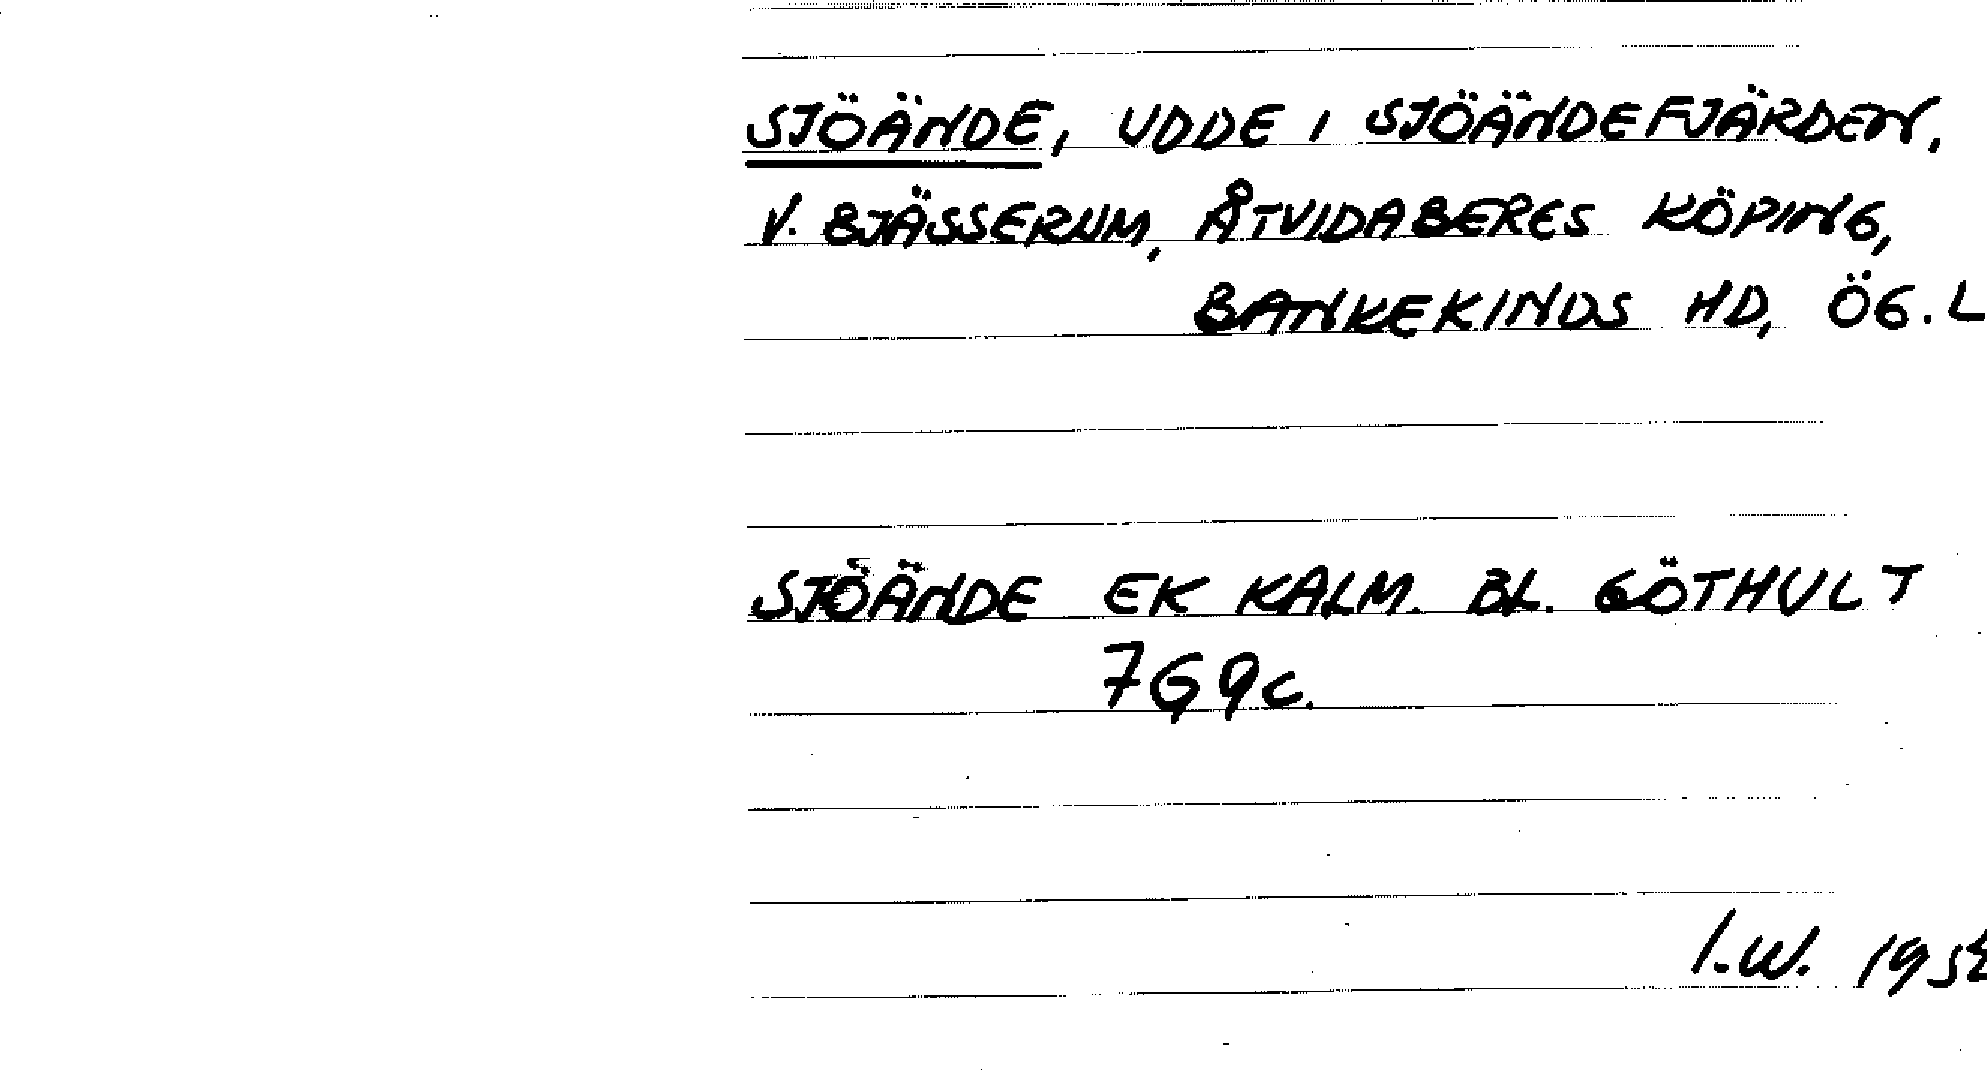 SJÖÄNDE, UDDE I SJÖÄNDEFJÄRDEN,
V. BJÄSSERUM, ÅTVIDABERGS KÖPING,
BANKEKINDS HD, ÖG. L
SJÖÄNDE EK KALM. BL. GÖTHULT
7G9c.
I.W.